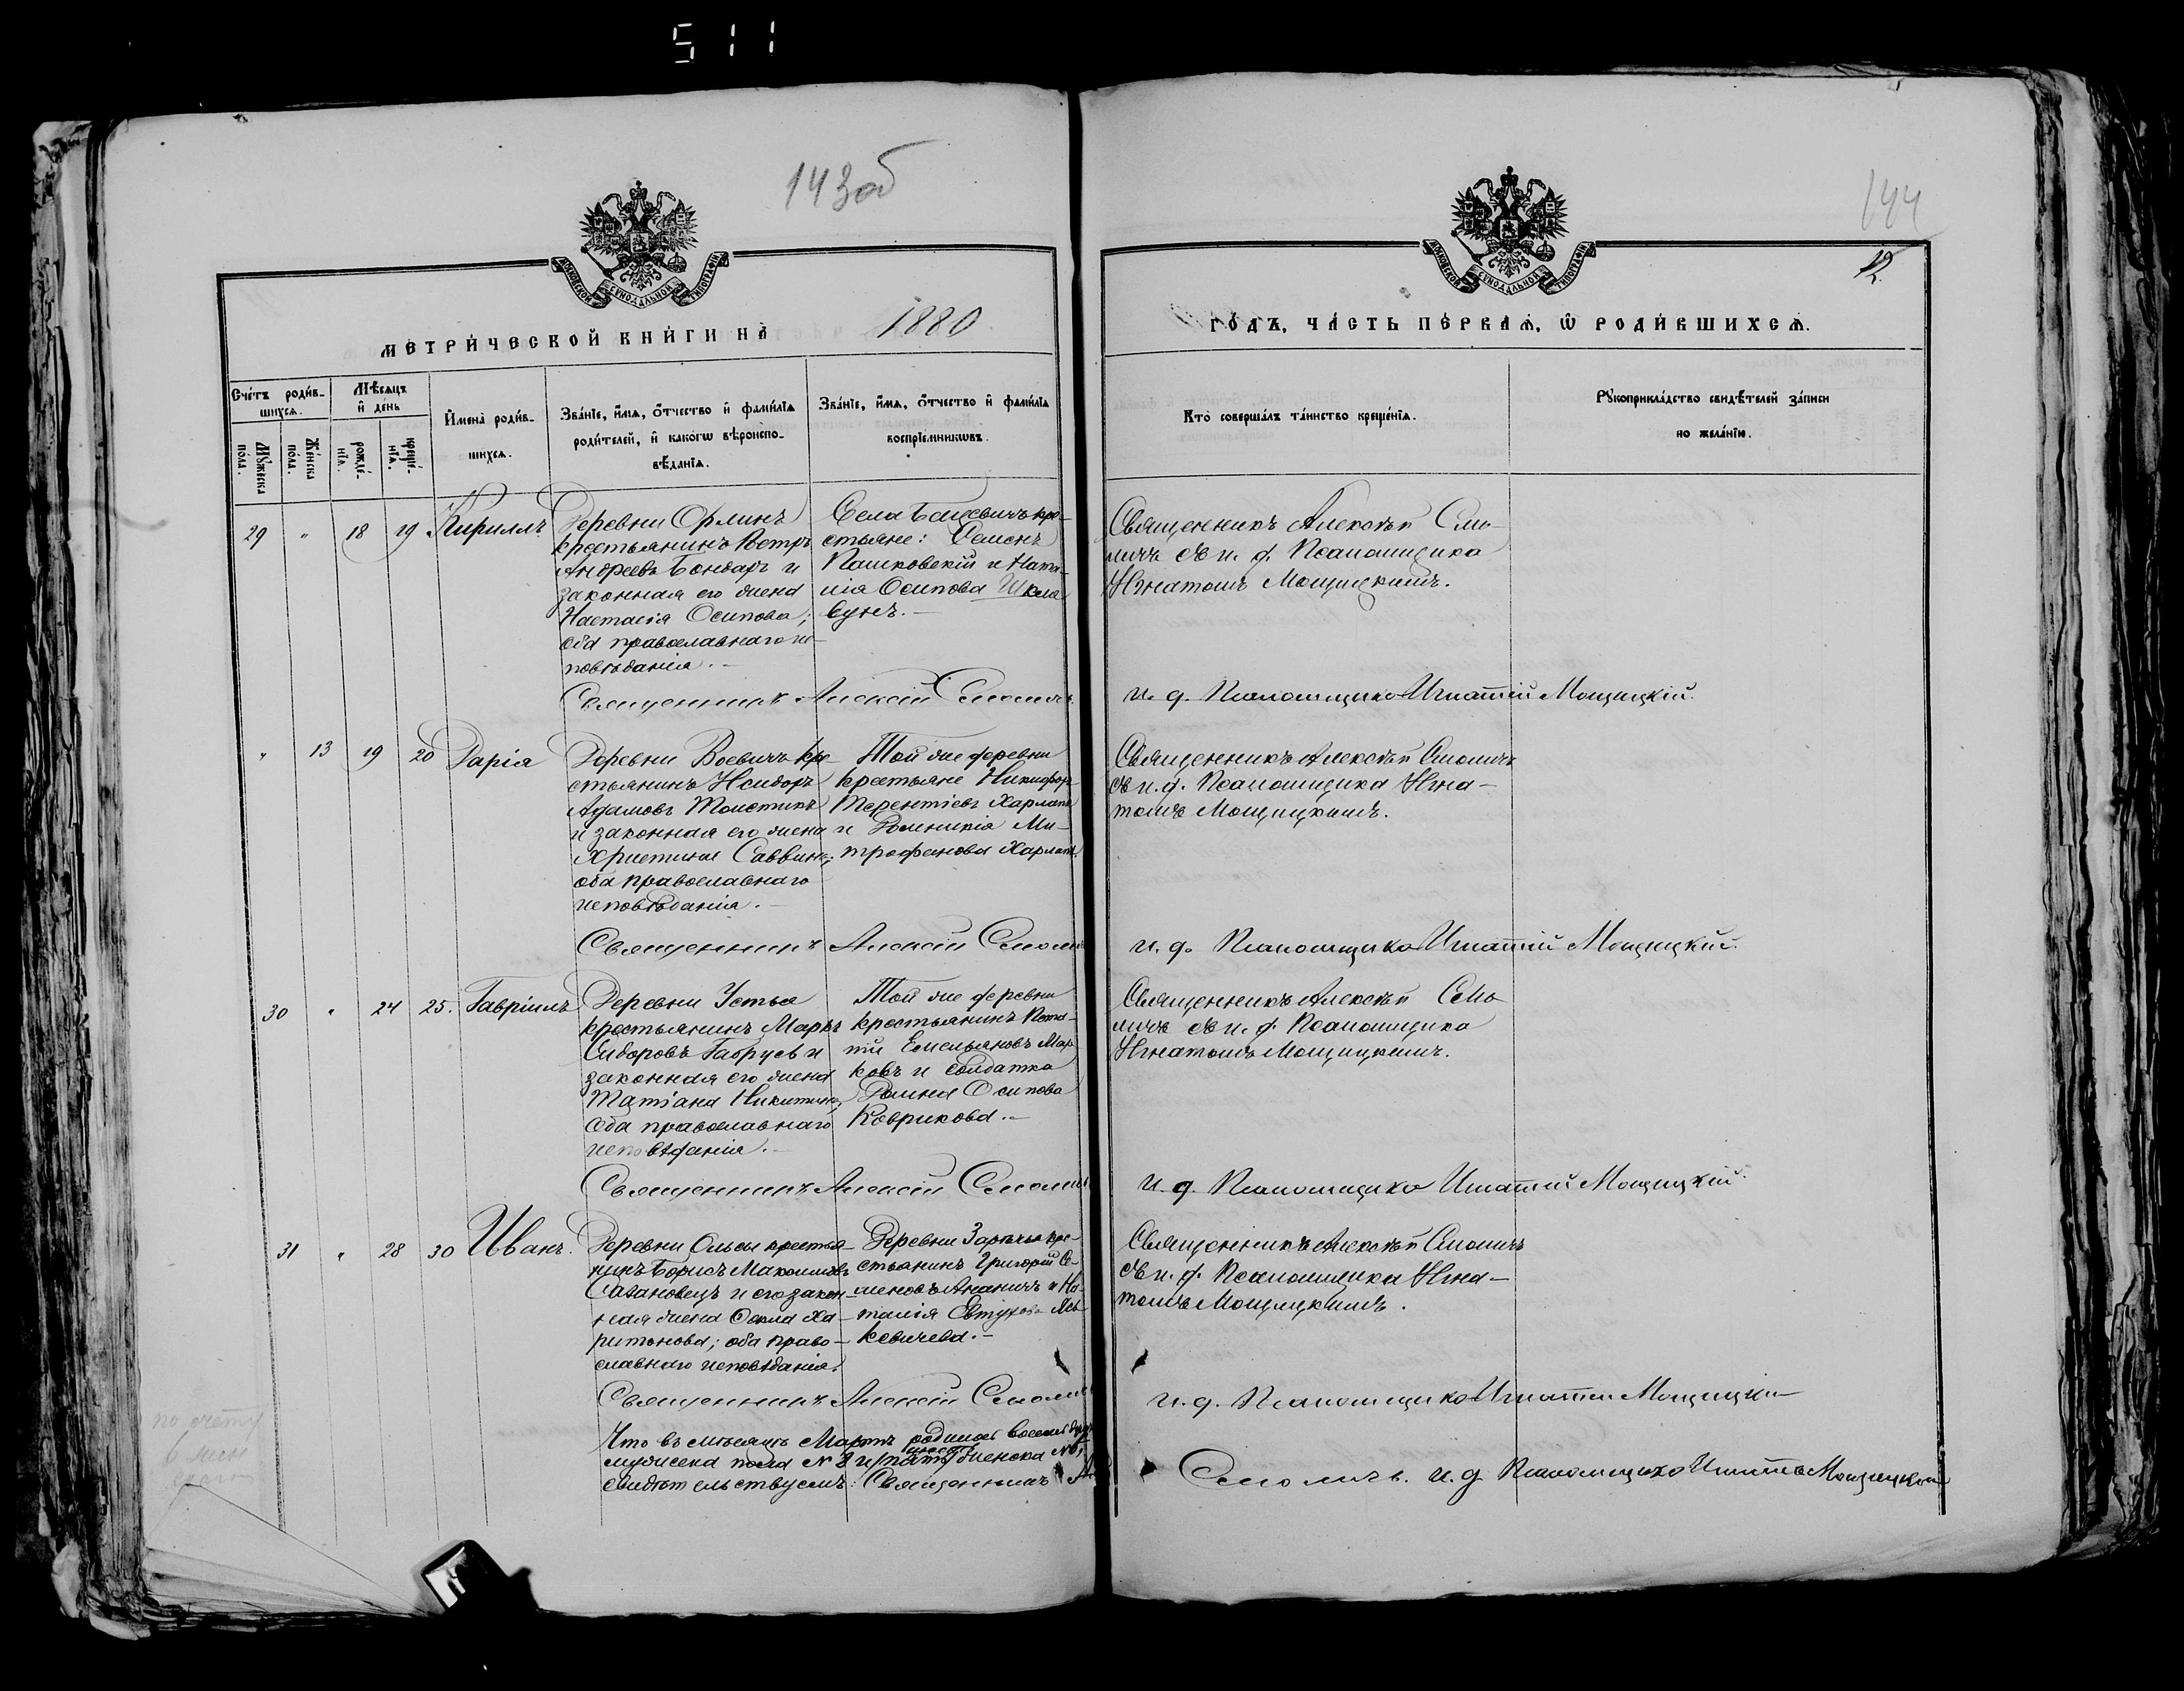 511
143об
144
12
МОСКОВСКОЙ СУНОДАЛЬНОЙ ТИПОГРАФІИ
МОСКОВСКОЙ СУНОДАЛЬНОЙ ТИПОГРАФІИ
МЕТРИ́ЧЕСКОЙ КНИ́ГИ НА̀ 1880
ГО́ДЪ, ЧА́СТЬ ПЕ́РВАѦ, Ѡ РОДИ́ВШИХСѦ.
Сче́тъ роди́в-
шихсѧ.
Мꙋ́жеска по́ла.
Же́нска по́ла.
Мѣ́сѧцъ
и҆ де́нь
рожде́-
нїѧ.
креще́-
нїѧ.
И҆мена̀ роди́в-
шихсѧ.
Зва́нїе, и҆́мѧ, ѻ҆́тчество и҆ фами́лїѧ
роди́телей, и҆ како́гѡ вѣроиспо-
вѣ́данїѧ.
Зва́нїе, и҆́мѧ, ѻ҆́тчество и҆ фами́лїѧ
воспрїе́мникѡвъ.
Кто̀ соверша́лъ та́инство креще́нїѧ.
Рꙋкоприкла́дство свидѣ́телей за́писи
по жела́нїю.
29 " 18 19 Кириллъ
Деревни Орлинъ
крестьянинъ Петръ
Андреевъ Бондарь и
законная его жена
Настасія Осипова;
оба православнаго ис-
повѣданія.-
Села Бацевичъ кре-
стьяне: Семенъ
Пашковскій и Ната-
лія Осипова Шкля
вунъ.-
Священникъ Алексѣй Смо-
личъ съ и. д. Псаломщика
Игнатомъ Мощицкимъ.
Священникъ Алексій Смоличъ
и. д. Псаломщика Игнатій Мощицкій.
" 13 19 20 Дарія
Деревни Воевичъ кре
стьянинъ Исидоръ
Адамовъ Толстикъ
и законная его жена
Христина Саввина;
оба православнаго
исповѣданія.-
Той же деревни
крестьяне Никифоръ
Терентіевъ Харлапъ
и Домникія Ми-
трофанова Харлапъ.
Священникъ Алексѣй Смоличъ
съ и. д. Псаломщика Игна-
томъ Мощицкимъ.
Священникъ Алексій Смоличъ
и. д. Псаломщика Игнатій Мощицкій.
30 " 24 25. Гавріилъ
Деревни Устья
крестьянинъ Маркъ
Сидоровъ Габрусь и
законная его жена
Татіана Никитина;
оба православнаго
исповѣданія.-
Той же деревни
крестьянинъ Пота-
пій Емельяновъ Мар
ковъ и солдатка
Домна Осипова
Коврикова.-
Священникъ Алексѣй Смо
личъ съ и. д. Псаломщика
Игнатомъ Мощицкимъ.
Священникъ Алексій Смоличъ
и. д. Псаломщика Игнатій Мощицкій.
31 " 28 30 Иванъ.
Деревни Ольсы крестья-
нинъ Борисъ Максимовъ
Сахановецъ и его закон-
ная жена Ѳекла Ха-
ритонова; оба право-
славнаго исповѣданія.
Деревни Зарѣчья кре-
стьянинъ Григорій Се-
меновъ Ананичъ и На-
талія Евтухова
кевичева.-
Священникъ Алексѣй Смоличъ
съ и. д. Псаломщика Игна-
томъ Мощицкимъ.
Священникъ Алексій Смоличъ
и. д. Псаломщика Игнатій Мощицкій
Что въ мѣсяцѣ Мартѣ родилось восемь
мужеска пола № 8 и женска №
свидѣтельствуемъ: Священникъ
Смоличъ. и. д. Псаломщика Игнатій Мощицкій
по счету